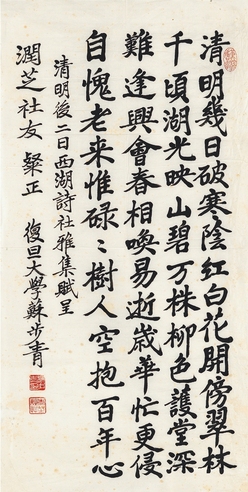 清明幾日破寒陰紅白花開傍翠林
千頃湖光映山碧万株柳色護堂深
難逢興會春相喚易逝歲華忙更侵
自愧老来惟碌〻樹人空抱百年心
清明後二日西湖詩社雅集賦呈
潤芝社友 粲正
復旦大學蘇步青